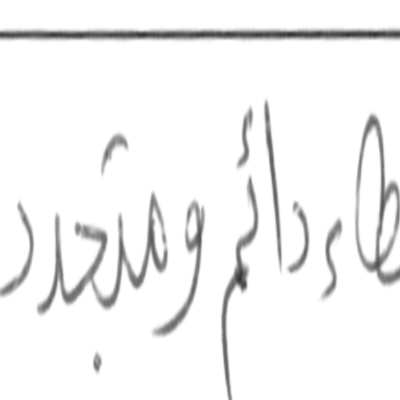 طاء دائم ومتجدد